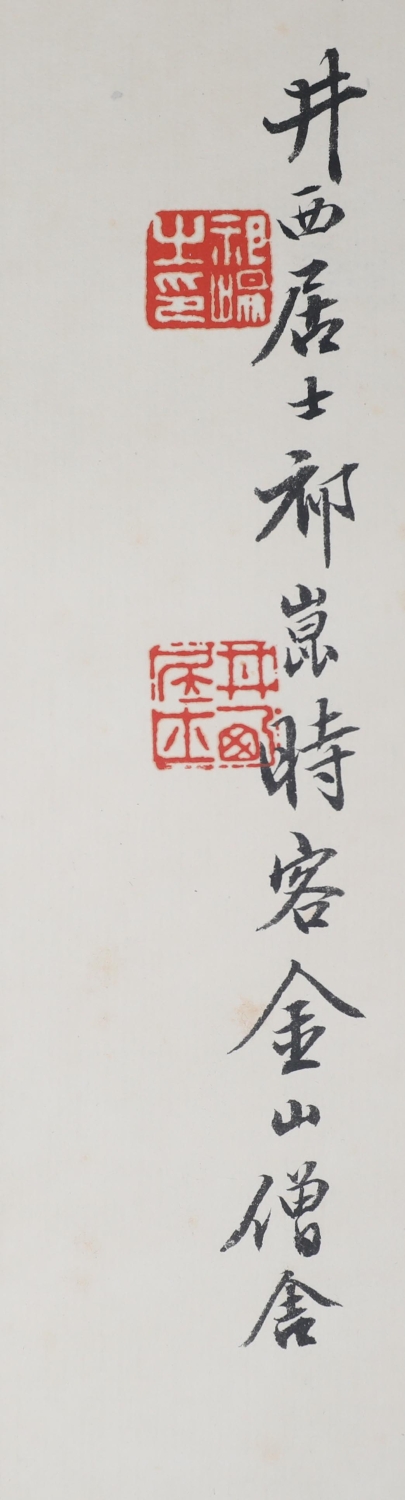 井西居士祁崑時客金山僧舍
祁崐之印
井西居士